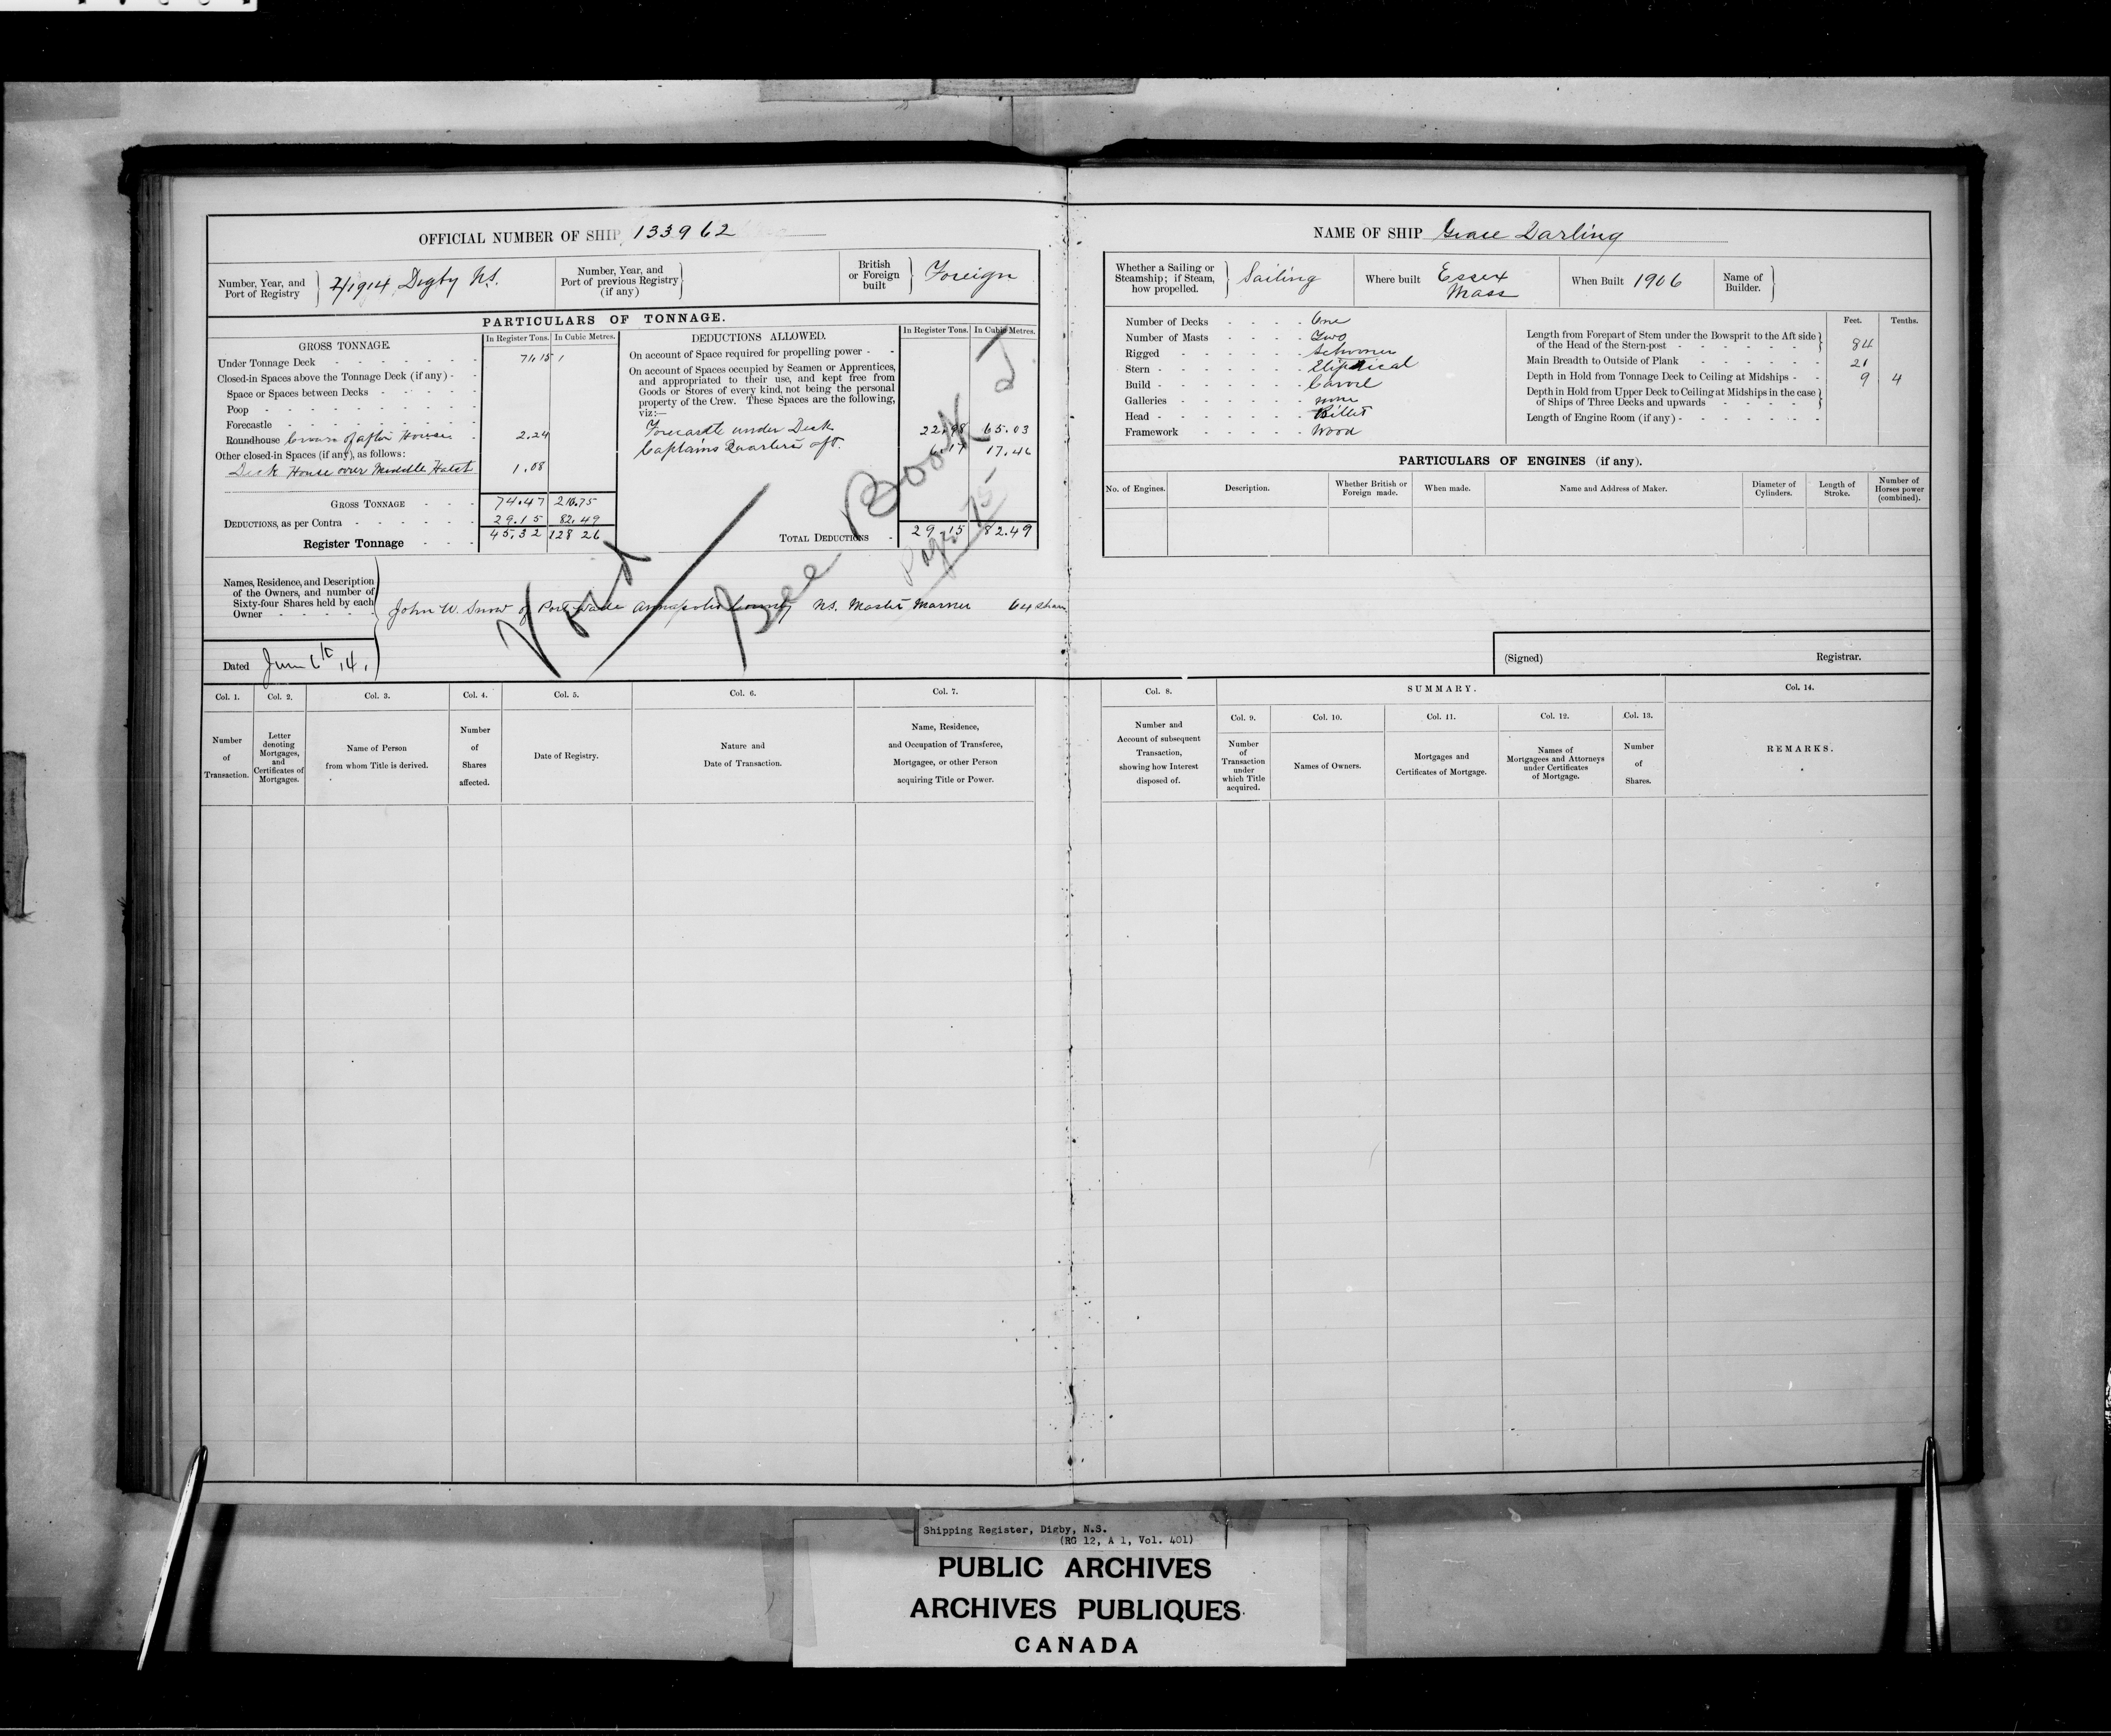 OFFICIAL NUMBER OF SHIP 133962
NAME OF SHIP Grace Darling
Number, Year, and Port of Registry } 7/1914 Digby N.S.
Number, Year, and Port of previous Registry (if any) }
British or Foreign built } Foreign
Whether a Sailing or Steamship; if Steam, how propelled. } Sailing
Where built Essex Mass
When Built 1906
Name of Builder. }
PARTICULARS OF TONNAGE.
GROSS TONNAGE.
In Register Tons. In Cubic Metres.
Under Tonnage Deck 71.15
Closed-in Spaces above the Tonnage Deck (if any)
Space or Spaces between Decks
Poop
Forecastle
Roundhouse Crown of after House 2.24
Other closed-in Spaces (if any), as follows:
Deck House over Middle Hatch 1.08
GROSS TONNAGE 74.47 210.75
DEDUCTIONS, as per Contra 29.15 82.49
Register Tonnage 45.32 128 26
DEDUCTIONS ALLOWED.
In Register Tons. In Cubic Metres.
On account of Space required for propelling power
On account of Spaces occupied by Seamen or Apprentices, and appropriated to their use, and kept free from Goods or Stores of every kind, not being the personal property of the Crew. These Spaces are the following, viz:—
Forecastle under Deck 22.98 65.03
Captains Quarters aft. 6.17 17.46
TOTAL DEDUCTIONS 29.15 82.49
Void
See Book J
Page 75
Number of Decks One
Number of Masts Two
Rigged Schooner
Stern Eliptical
Build Carvel
Galleries none
Head Billet
Framework Wood
Feet. Tenths.
Length from Forepart of Stem under the Bowsprit to the Aft side of the Head of the Stern-post } 84
Main Breadth to Outside of Plank 21
Depth in Hold from Tonnage Deck to Ceiling at Midships 9 4
Depth in Hold from Upper Deck to Ceiling at Midships in the case of Ships of Three Decks and upwards }
Length of Engine Room (if any)
PARTICULARS OF ENGINES (if any).
No. of Engines. Description. Whether British or Foreign made. When made. Name and Address of Maker. Diameter of Cylinders. Length of Stroke. Number of Horses power (combined).
Names, Residence, and Description of the Owners, and number of Sixty-four Shares held by each Owner } John W. Snow of Port Wade Annapolis County N.S. Master Mariner 64 shares
Dated June 6th 14. }
(Signed) Registrar.
Col. 1. Col. 2. Col. 3. Col. 4. Col. 5. Col. 6. Col. 7. Col. 8.
SUMMARY.
Col. 9. Col. 10. Col. 11. Col. 12. Col. 13. Col. 14.
Number of Transaction.
Letter denoting Mortgages, and Certificates of Mortgages.
Name of Person from whom Title is derived.
Number of Shares affected.
Date of Registry.
Nature and Date of Transaction.
Name, Residence, and Occupation of Transferee, Mortgagee, or other Person acquiring Title or Power.
Number and Account of subsequent Transaction, showing how Interest disposed of.
Number of Transaction under which Title acquired.
Names of Owners.
Mortgages and Certificates of Mortgage.
Names of Mortgagees and Attorneys under Certificates of Mortgage.
Number of Shares.
REMARKS.
Shipping Register, Digby, N.S.
(RG 12, A 1, Vol. 401)
PUBLIC ARCHIVES
ARCHIVES PUBLIQUES
CANADA